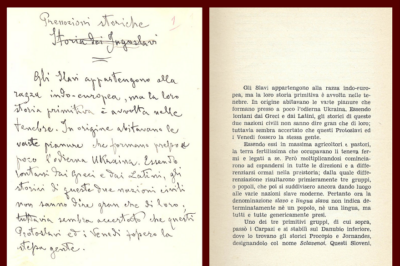 Premozioni storiche
1
Storia dei Jugoslavi
Gli Slavi appartengono alla
razza indo-europea, ma la loro
storia primitiva è avvolta nelle
tenebre. In origine abitavano le
varie pianure che formano
poco l'odierna Ukraina. Essendo
lontani dai Greci e dai Latini, gli
storici di queste due nazioni civili
non sanno dire gran che di loro;
tuttavia sembra accertato che questi
Protoslavi et i Venedi fossero la
stessa gente.
Gli Slavi appartengono alla rama indo-euro-
pea, ma la loro storia primitiva è avvolta nelle te-
nebre. In origine abitavano le varie pianure che
formano presso a poco l'odierna Ukraina. Essendo
lontani dai Greci e dai Latini, gli storici di queste
due nazioni civili non sanno dire gran che di loro;
tuttavia sembra accertato che questi Protoslavi ed
i Venedi fossero la stessa gente.
Essendo essi in massima agricoltori e pastori,
la terra fertilissima che occupavano li teneva fer-
mi e legati a se. Però moltiplicandosi comincia-
rono ad espandersi in tutte le direzioni e a diffe-
rentiarsi ormai nella preistoria; dalla quale diffe-
rentiazione risultarono primieramente tre gruppi,
o popoli, che poi si suddivisero ancora dando luogo
alle varie nazioni slave moderne. Pertanto ora la
denominazione slavo e lingua slava non indica de-
terminatamente nè un popolo, nè una lingua, ma
tutti e tutte genericamente presi.
Uno dei tre primitivi gruppi, di cui sopra,
passò i Carpazi e si stabilì sul Danubio inferiore,
dove lo trovano gli storici Procopio e Jornandes,
designandolo col nome Sclavenoi. Questi Sloveni,